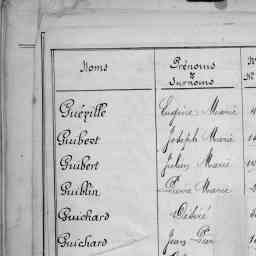 Noms Prénoms
&
surnoms
Guéville Eugène Marie
Guibert Joseph Marie
Guibert Julien Marie
Guiblin Pierre Marie
Guichard Désiré
Guichard Jean